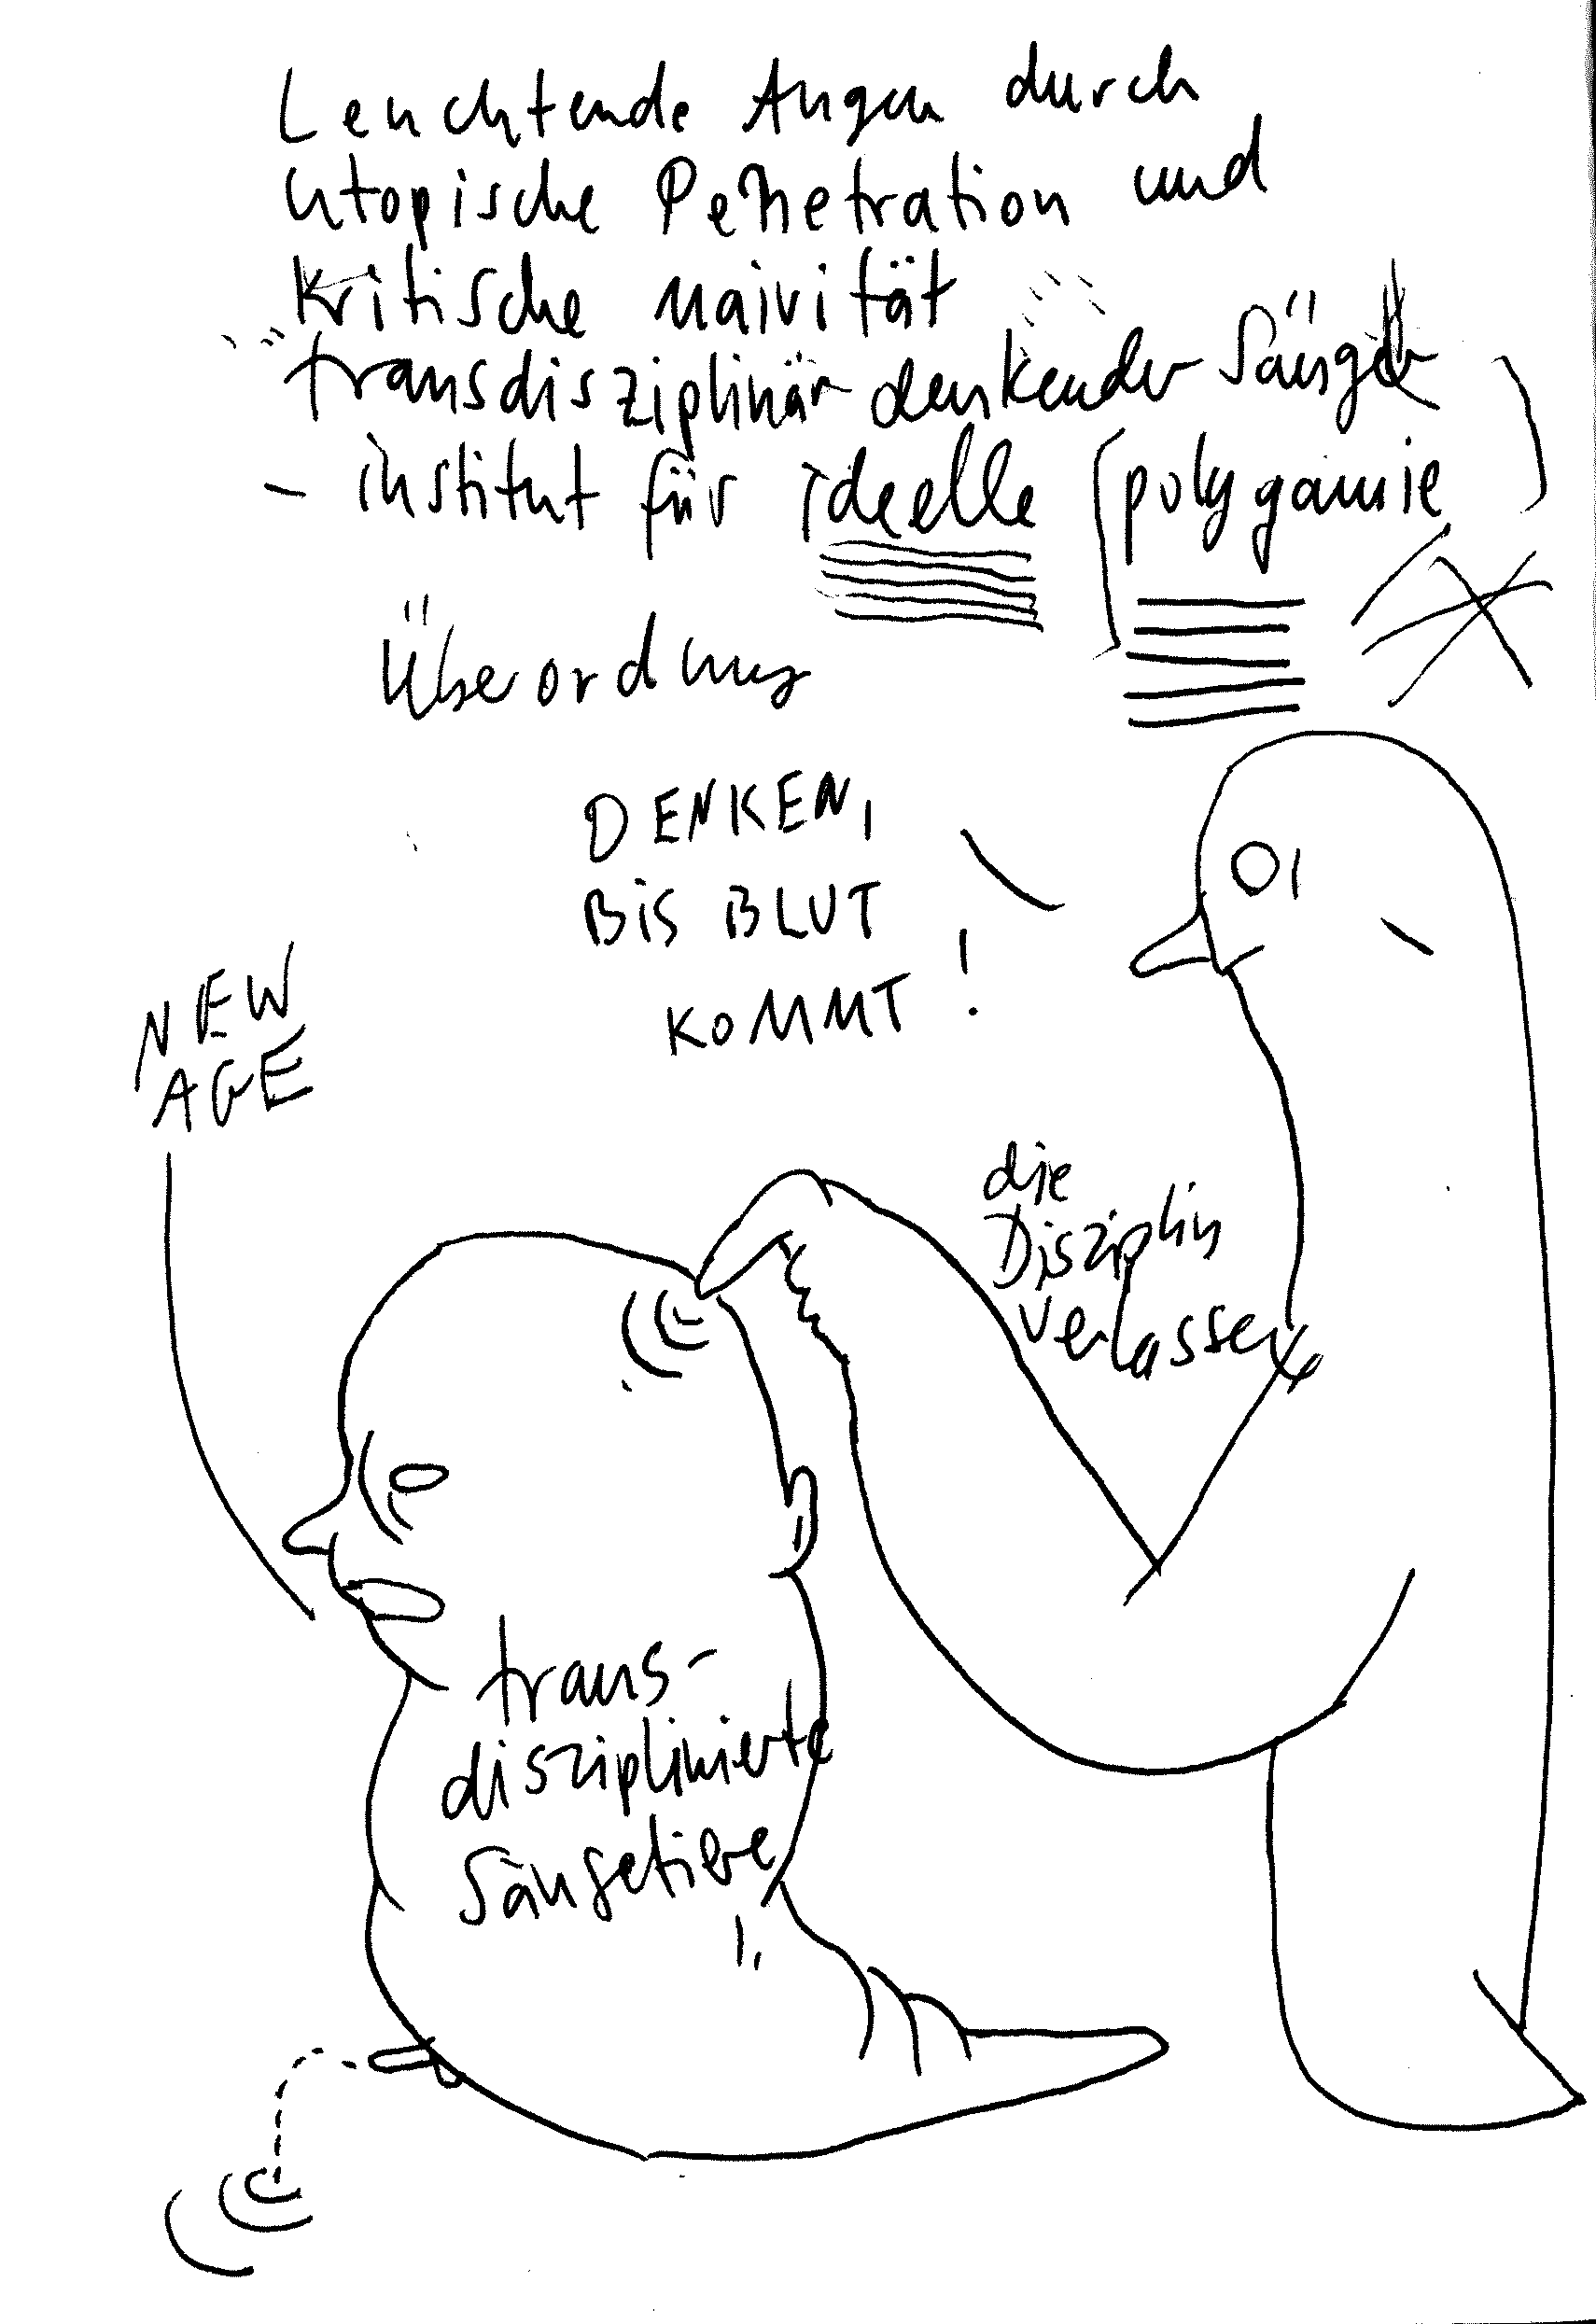 Leuchtende Augen durch
utopische Penetration und
kritische naivität
transdisziplinär denkender Säuger
- institut für ideelle polygamie
Überordnung
DENKEN,
BIS BLUT
KOMMT!
NEW
AGE
die
Disziplin
verlassen
trans-
disziplinierte
Säugetiere